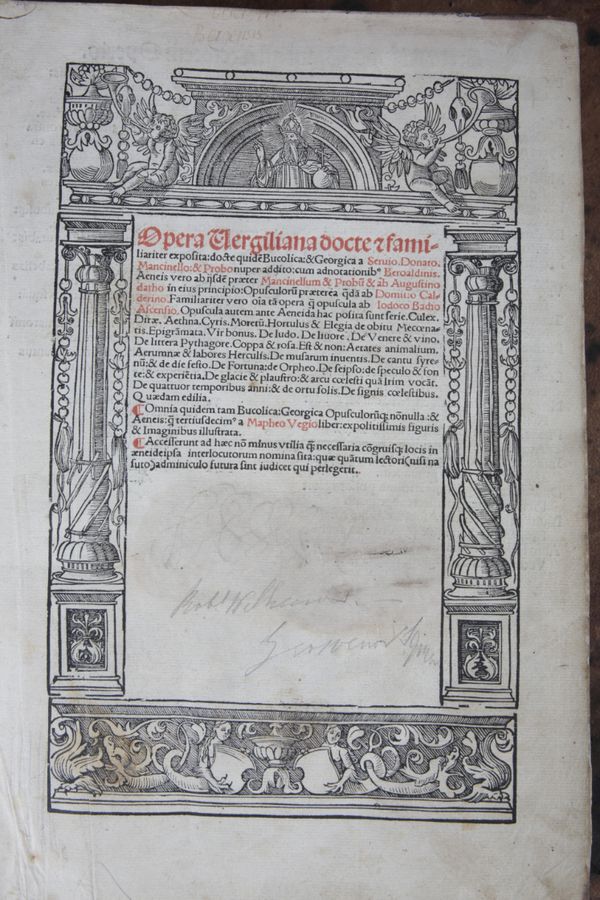 Opera Vergiliana docte ⁊ fami-
liariter exposita: docte quidē Bucolica: & Georgica a Seruio. Donato.
Mancinello: & Probo nuper addito: cum adnotationib⁹ Beroaldinis.
Aeneis vero ab ijsdē præter Mancinellum & Probū & ab Augustino
Datho in eius principio: Opusculorū præterea q̄dā ab Domitio Cal
derino. Familiariter vero oīa tā opera q̄ opuscula ab Iodoco Badio
Ascensio. Opuscula autem ante Aeneida hac posita sunt serie. Culex.
Diræ. Aethna. Cyris. Moretū. Hortulus & Elegia de obitu Mecœna-
tis. Epigrāmata. Vir bonus. De ludo. De liuore. De Venere & vino.
De littera Pythagoræ. Coppa & rosa. Est & non: Aetates animalium.
Aerumnæ & labores Herculis. De musarum inuentis. De cantu syre
nū: & de die festo. De Fortuna: de Orpheo. De seipso: de speculo & fon
te: & experiētia. De glacie & plaustro: & arcu cœlesti quā Irim vocāt.
De quattuor temporibus anni: & de ortu solis. De signis cœlestibus.
Quædam edilia.
¶ Omnia quidem tam Bucolica: Georgica Opusculorūq; nōnulla: &
Aeneis: q̄ tertiusdecim⁹ a Mapheo Vegio liber: expolitissimis figuris
& Imaginibus illustrata.
¶ Accesserunt ad hæc nō minus vtilia q̄ necessaria cōgruisq; locis in
æneide ipsa interlocutorum nomina sita: quæ quātum lectori (nisi na
suto) adminiculo futura sint iudicet qui perlegerit.